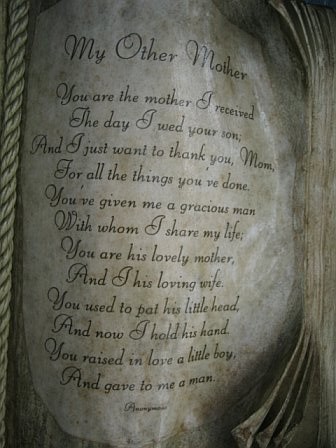 My Other Mother
You are the mother I received
The day I wed your son;
And I just want to thank you, Mom,
For all the things you've done.
You've given me a gracious man
With whom I share my life;
You are his lovely mother,
And I his loving wife.
You used to pat his little head,
And now I hold his hand.
You raised in love a little boy,
And gave to me a man.
Anonymous